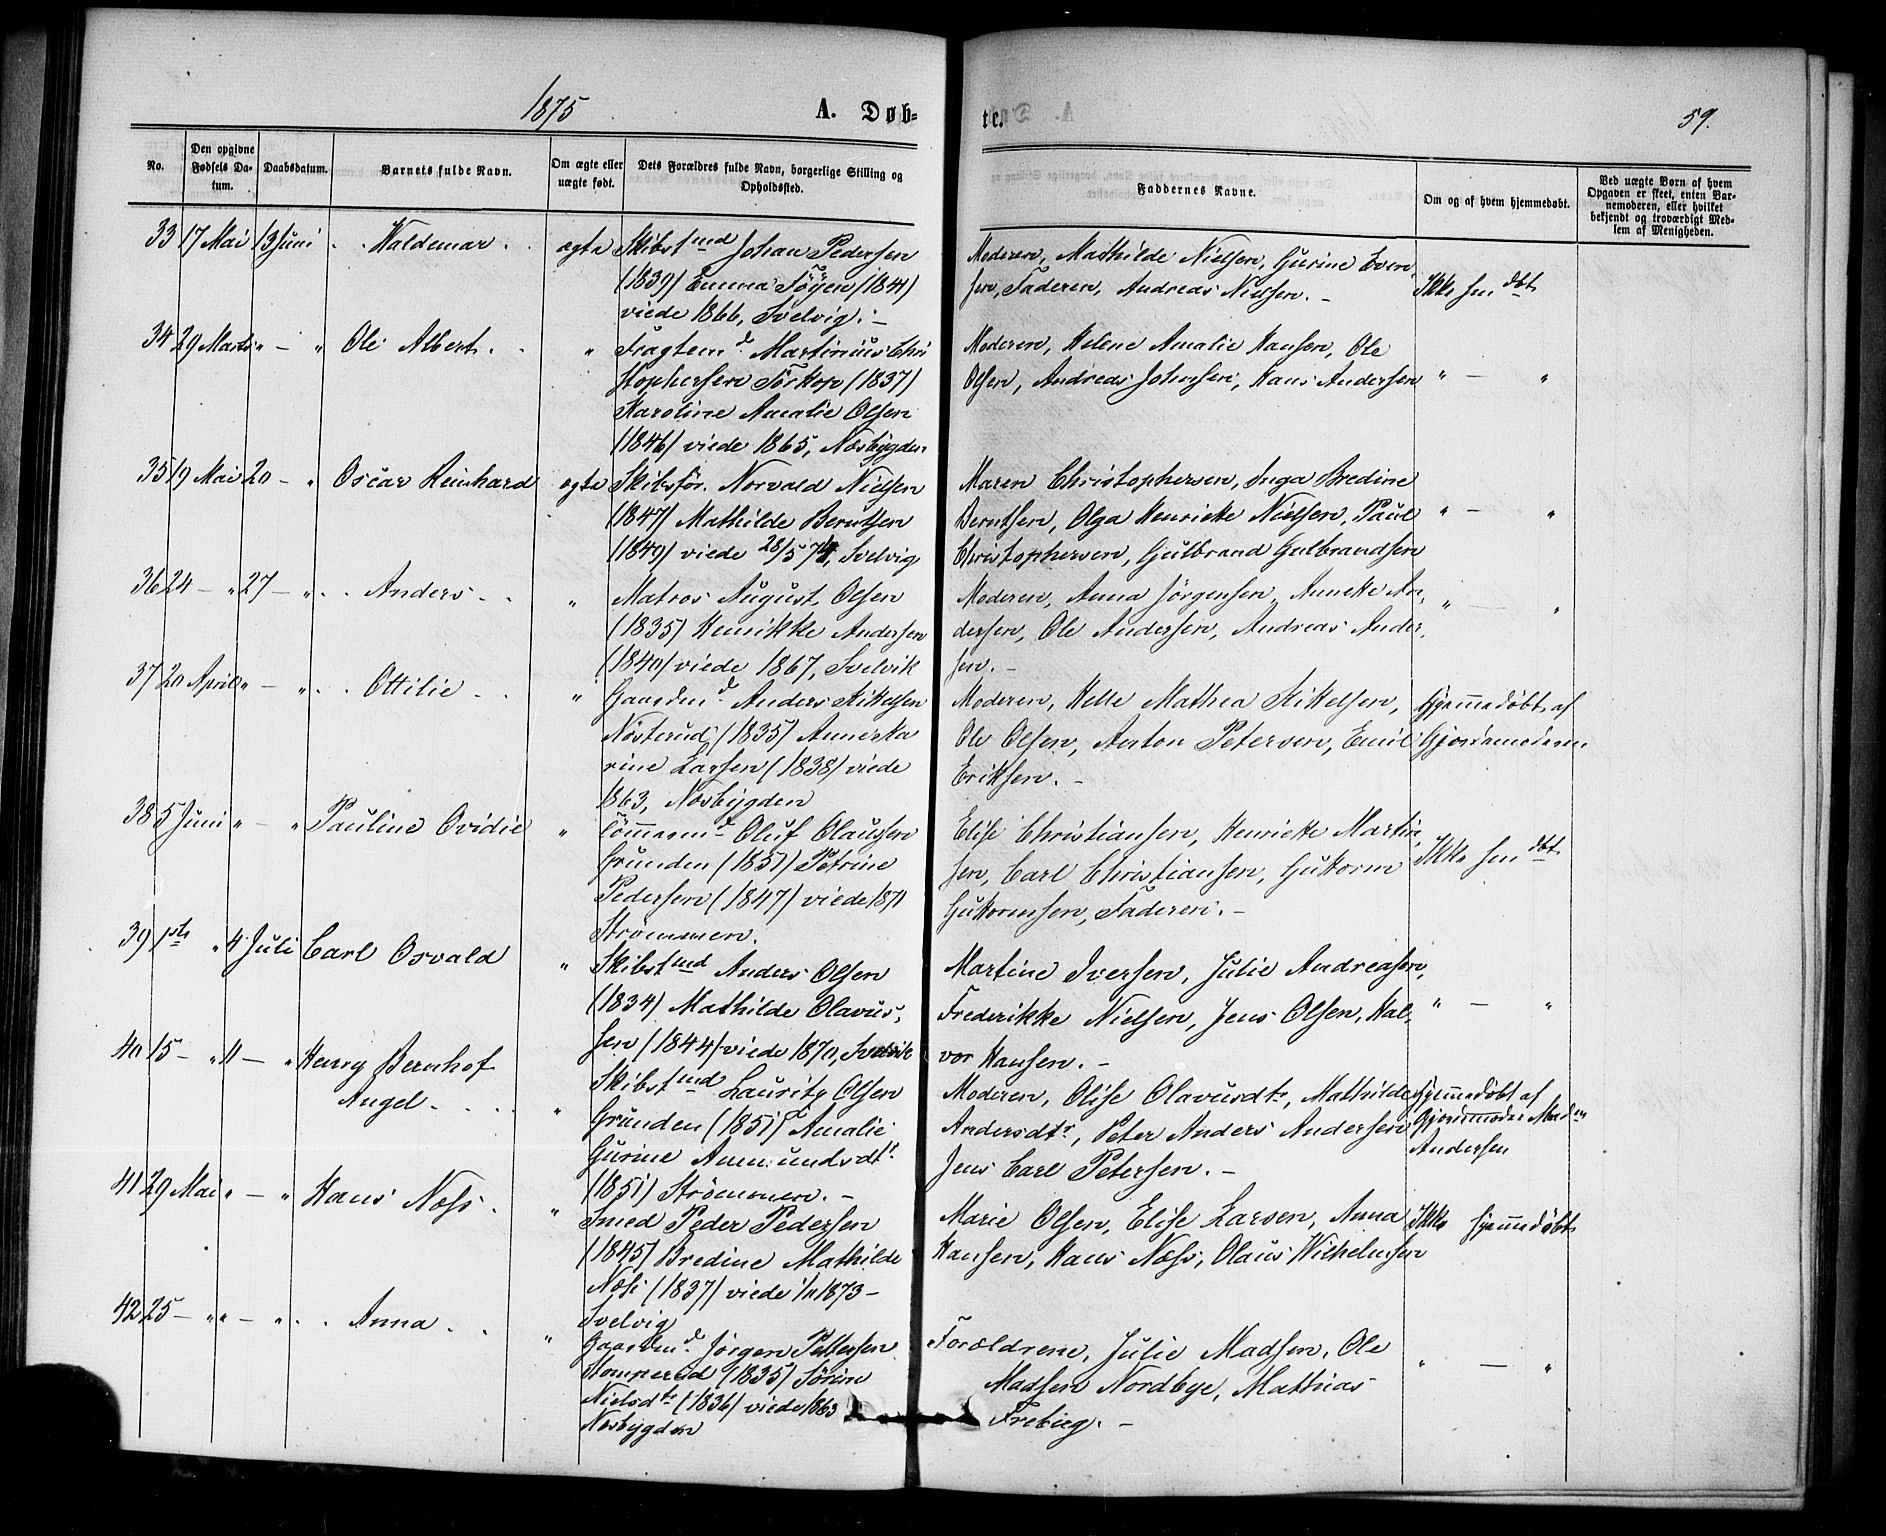 1875
A. Døb-
te.
59.
No.
Den opgivne
Fødsels Da-
tum.
Daabsdatum.
Barnets fulde Navn.
Om ægte eller
uægte født.
Dets Forældres fulde Navn, borgerlige Stilling og
Opholdssted.
Faddernes Navne.
Om og af hvem hjemmedøbt.
Ved uægte Børn af hvem
Opgaven er skeet, enten Bar-
nemoderen, eller hvilket
bekjendt og troværdigt Med-
lem af Menigheden.
33 17 Mai 13 Juni Waldemar ægte Skibstmd Johan Pedersen
(1839) Emma (1841)
viede 1866, Svelvig. -
Moderen, Mathilde Nielsen, Gurine Even-
sen, Faderen, Andreas Nielsen. -
Ikke hendbt
34 29 Marts " - " Ole Albert. " Fragtemd. Martinius Chri
stophersen Tørkop (1837)
Karoline Amalie Olsen
(1846) viede 1865, Nesbygden
Moderen, Helene Amalie Hansen, Ole
Olsen, Andreas Johnsen, Hans Andersen " - "
35 19 Mai 20 - " Oscar Reinhard ægte Skibsfør. Norvald Nielsen
(1847) Mathilde Berntsen
(1849) viede 28/5 74, Svelvig
Maren Christophersen, Inga Bredine
Berntsen, Olga Henrieke Nielsen, Paul
Christophersen, Gulbrand Gulbrandsen " - "
36 24 - " 27 - " Anders " Matros August Olsen
(1835) Henrikke Andersen
(1840) viede 1867, Svelvik
Moderen, Anna Jørgensen, Anneke An-
dersen, Ole Andersen, Andreas Ander-
sen. - " - "
37 20 April " - " Ottilie " Gaardmd. Anders Kikelsen
Nøsterud (1835) Anneka
rine Larsen (1838) viede
1863, Nesbygden
Moderen, Helle Mathea Kikelsen,
Ole Olsen, Anton Petersen, Emil
Eriksen. -
Hjemmedøbt af
Gjordemoderen
38 5 Juni " - " Pauline Ovidie " Tømmermd Oluf Olaussen
Grunden (1851) Petrine
Pedersen (1847) viede 1871
Strømmen.
Elise Christiansen, Henrieke Martin-
sen, Carl Christiansen, Gutorm
Gutormsen, Faderen. -
Ikke hendbt
39 1ste " 4 Juli Carl Osvald " Skibstmd Anders Olsen
(1834) Mathilde Olavus-
sen (1844) viede 1870, Svelvik
Martine Iversen, Julie Andreasen,
Frederikke Nielsen, Jens Olsen, Hal-
vor Hansen. - " - "
40 15 - " 11 - " Henry Bernhof
Angel " Skibstmd Lauritz Olsen
Grunden (1851) Amalie
Gurine Amundsdtr.
(1851) Strømmen. -
Moderen, Olise Olavusdtr, Mathilde
Andersdtr, Peter Anders Andersen
Jens Carl Petersen. -
Hjemmedøbt af
Gjordemoder
Andersen
41 29 Mai " - " Hans Næss. " Smed Peder Pedersen
(1845) Bredine Mathilde
Næss (1837) viede 1873 -
Svelvig
Marie Olsen, Elise Larsen, Anna
Hansen, Hans Næss, Olaus Wilhelmsen
Ikke hjemmedøbt
42 25 - " " - " Anna " Gaardmd. Jørgen Pettersen
(1835) Sørine
Nielsdtr (1836) viede 1863
Nesbygden
Forældrene, Julie Madsen, Ole
Madsen Nordbye, Mathias
Frebieg. - " - "